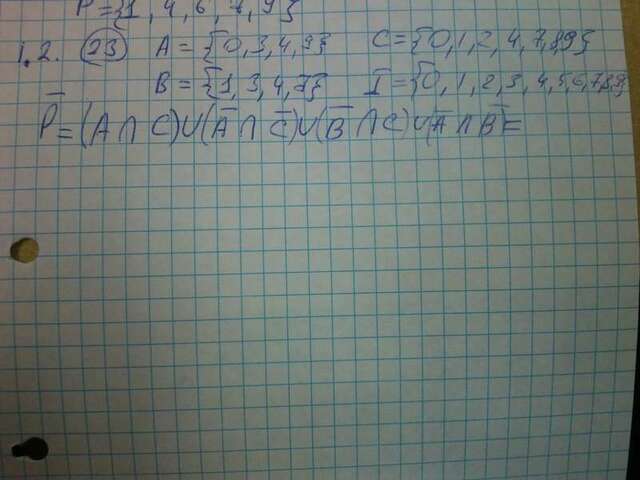 P={1, 4, 6, 7, 9}
1.2. 23 A = {0,3,4,9} C={0,1,2,4,7,8,9}
B = {1,3,4,7} I={0,1,2,3,4,5,6,7,8,9}
P̅=(A∩C)∪(A̅∩C̅)∪(B̅∩C)∪(A̅∩B̅=